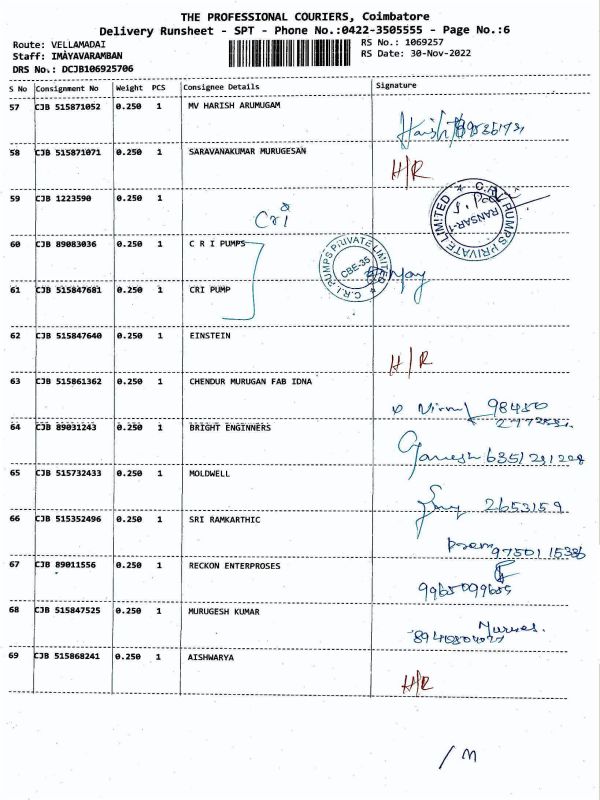 THE PROFESSIONAL COURIERS, Coimbatore
Delivery Runsheet - SPT - Phone No.:0422-3505555 - Page No.:6
Route: VELLAMADAI
RS No.: 1069257
Staff: IMAYAVARAMBAN
RS Date: 30-Nov-2022
DRS No.: DCJB106925706
S No Consignment No Weight PCS Consignee Details Signature
57 CJB 515871052 0.250 1 MV HARISH ARUMUGAM
Harish
58 CJB 515871071 0.250 1 SARAVANAKUMAR MURUGESAN
H/R
59 CJB 1223590 0.250 1
Cri
C.R.I. PUMPS PRIVATE LIMITED
60 CJB 89083036 0.250 1 C R I PUMPS
C.R.I. PUMPS PRIVATE LIMITED CBE-35
61 CJB 515847681 0.250 1 CRI PUMP
62 CJB 515847640 0.250 1 EINSTEIN
H/R
63 CJB 515861362 0.250 1 CHENDUR MURUGAN FAB IDNA
98450
64 CJB 89031243 0.250 1 BRIGHT ENGINNERS
Ganesh 6351291208
65 CJB 515732433 0.250 1 MOLDWELL
2653159
66 CJB 515352496 0.250 1 SRI RAMKARTHIC
9750115386
67 CJB 89011556 0.250 1 RECKON ENTERPROSES
68 CJB 515847525 0.250 1 MURUGESH KUMAR
69 CJB 515868241 0.250 1 AISHWARYA
H/R
/M